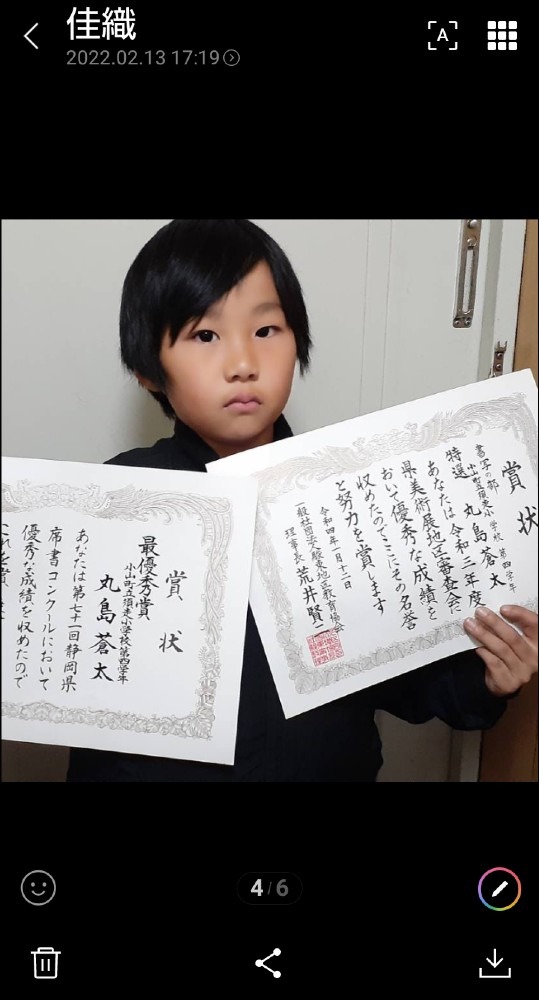 佳織
2022.02.13 17:19
A
賞状
書写の部
小山町立須走小学校 第四学年
特選 丸島蒼太
あなたは令和三年度
県美術展地区審査会に
おいて優秀な成績を
収めたのでここにその名誉
と努力を賞します
令和四年一月十二日
一般社団法人駿東地区教育協会
理事長 荒井賢一
賞状
最優秀賞
小山町立須走小学校第四学年
丸島蒼太
あなたは第七十一回静岡県
席書コンクールにおいて
優秀な成績を収めたので
4/6